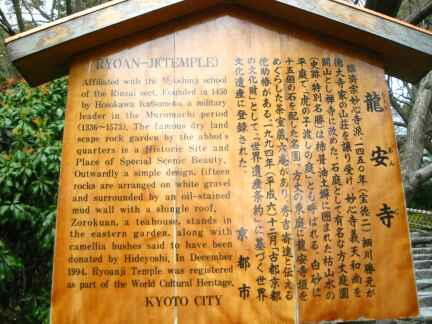 (RYOAN-JI TEMPLE)
Affiliated with the Myoshinji school
of the Rinzai sect, Founded in 1450
by Hosokawa Katsumoto, a military
leader in the Muromachi period
(1336~1573). The famous dry land
scape rock garden by the abbot's
quarters is a Historic Site and
Place of Special Scenic Beauty.
Outwardly a simple design, fifteen
rocks are arranged on white gravel
and surrounded by an oil-stained
mud wall with a shingle roof,
Zorokuan, a teahouse, stands in
the eastern garden, along with
camellia bushes said to have been
donated by Hideyoshi. In December
1994, Ryoanji Temple was registered
as part of the World Cultural Heritage,
KYOTO CITY
龍安寺
臨済宗妙心寺派。一四五〇年(宝徳二)細川勝元が
徳大寺家の山荘を譲り受け、妙心寺義天和尚を
開山とし禅寺に改めた。石庭として有名な方丈庭園
(史跡・特別名勝)は杮葺油土塀に囲まれた枯山水の
平庭で「虎の子渡しの庭」とも呼ばれる。白砂に
十五個の石を配した名園。方丈の東庭に龍安寺垣を
めぐらした茶室蔵六庵があり、秀吉寄進と伝える
侘助椿がある。一九九四年(平成六)十二月「古都京都
の文化財」として、「世界遺産条約」に基づく世界
文化遺産に登録された。
京都市